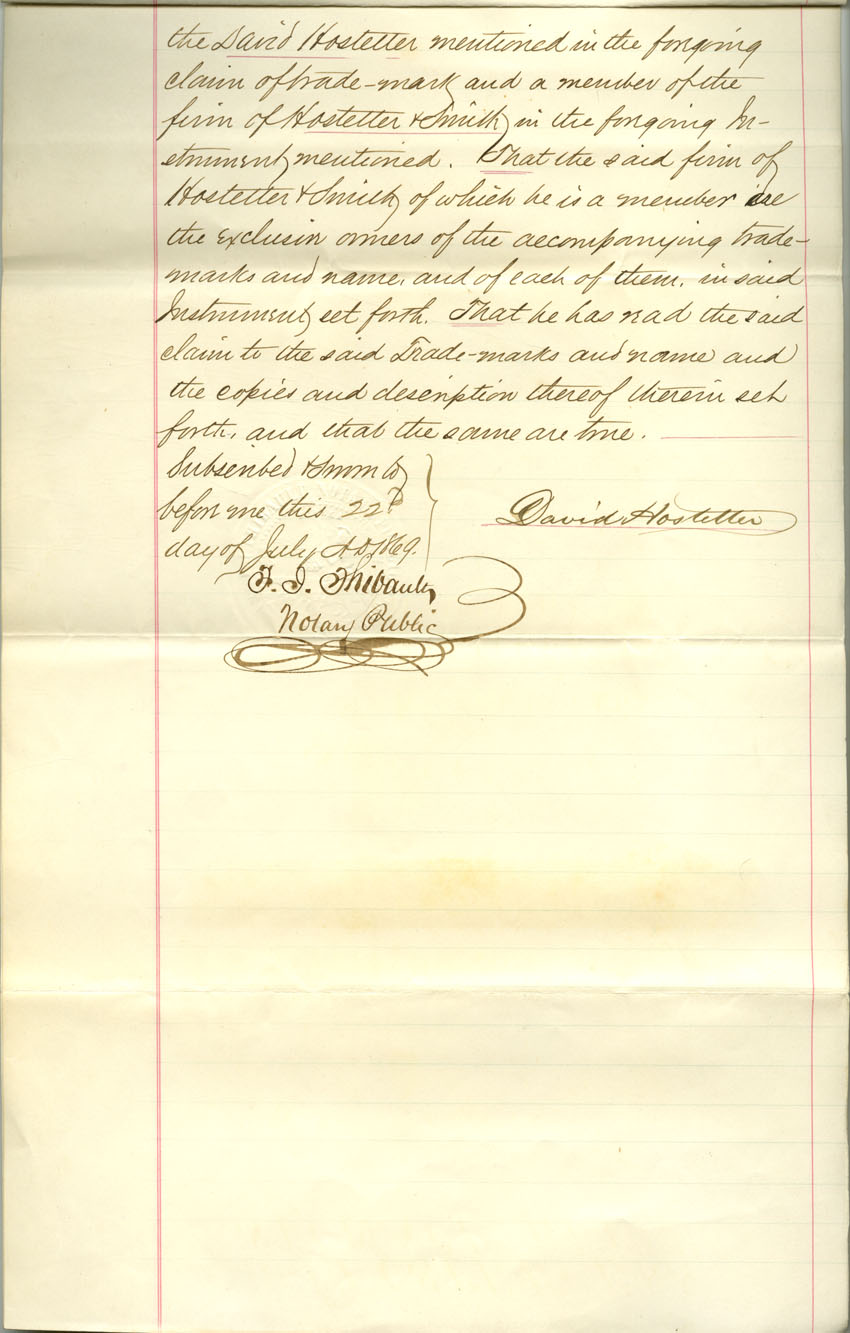 the David Hostetter mentioned in the forgoing
claim of trade-mark and a member of the
firm of Hostetter & Smith in the forgoing In-
strument mentioned. That the said firm of
Hostetter & Smith of which he is a member are
the exclusive owners of the accompanying trade-
marks and name, and of each of them, in said
Instrument set forth. That he has read the said
claim to the said Trade-marks and name and
the copies and description thereof therein set
forth, and that the same are true.
Subscribed & sworn to
before me this 22d
day of July A D 1869.
David Hostetter
F. J. Thibault
Notary Public